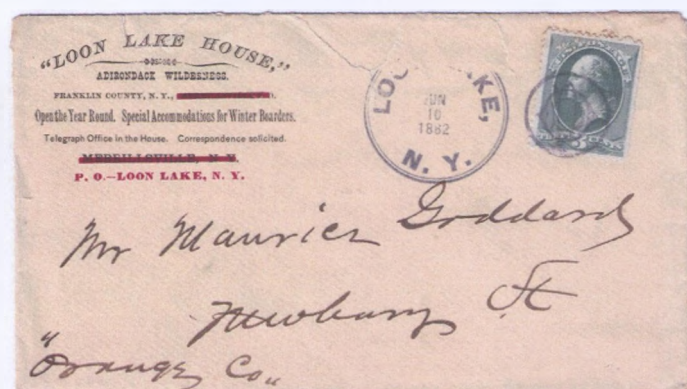 "LOON LAKE HOUSE,"
ADIRONDACK WILDERNESS.
FRANKLIN COUNTY, N. Y.,
Open the Year Round. Special Accommodations for Winter Boarders.
Telegraph Office in the House. Correspondence solicited.
MERRILLSVILLE, N. Y.
P. O.—LOON LAKE, N. Y.
LOO KE,
JUN
10
1882
N. Y.
Mr Maurice Goddard
Newburg St
"Orange Co"